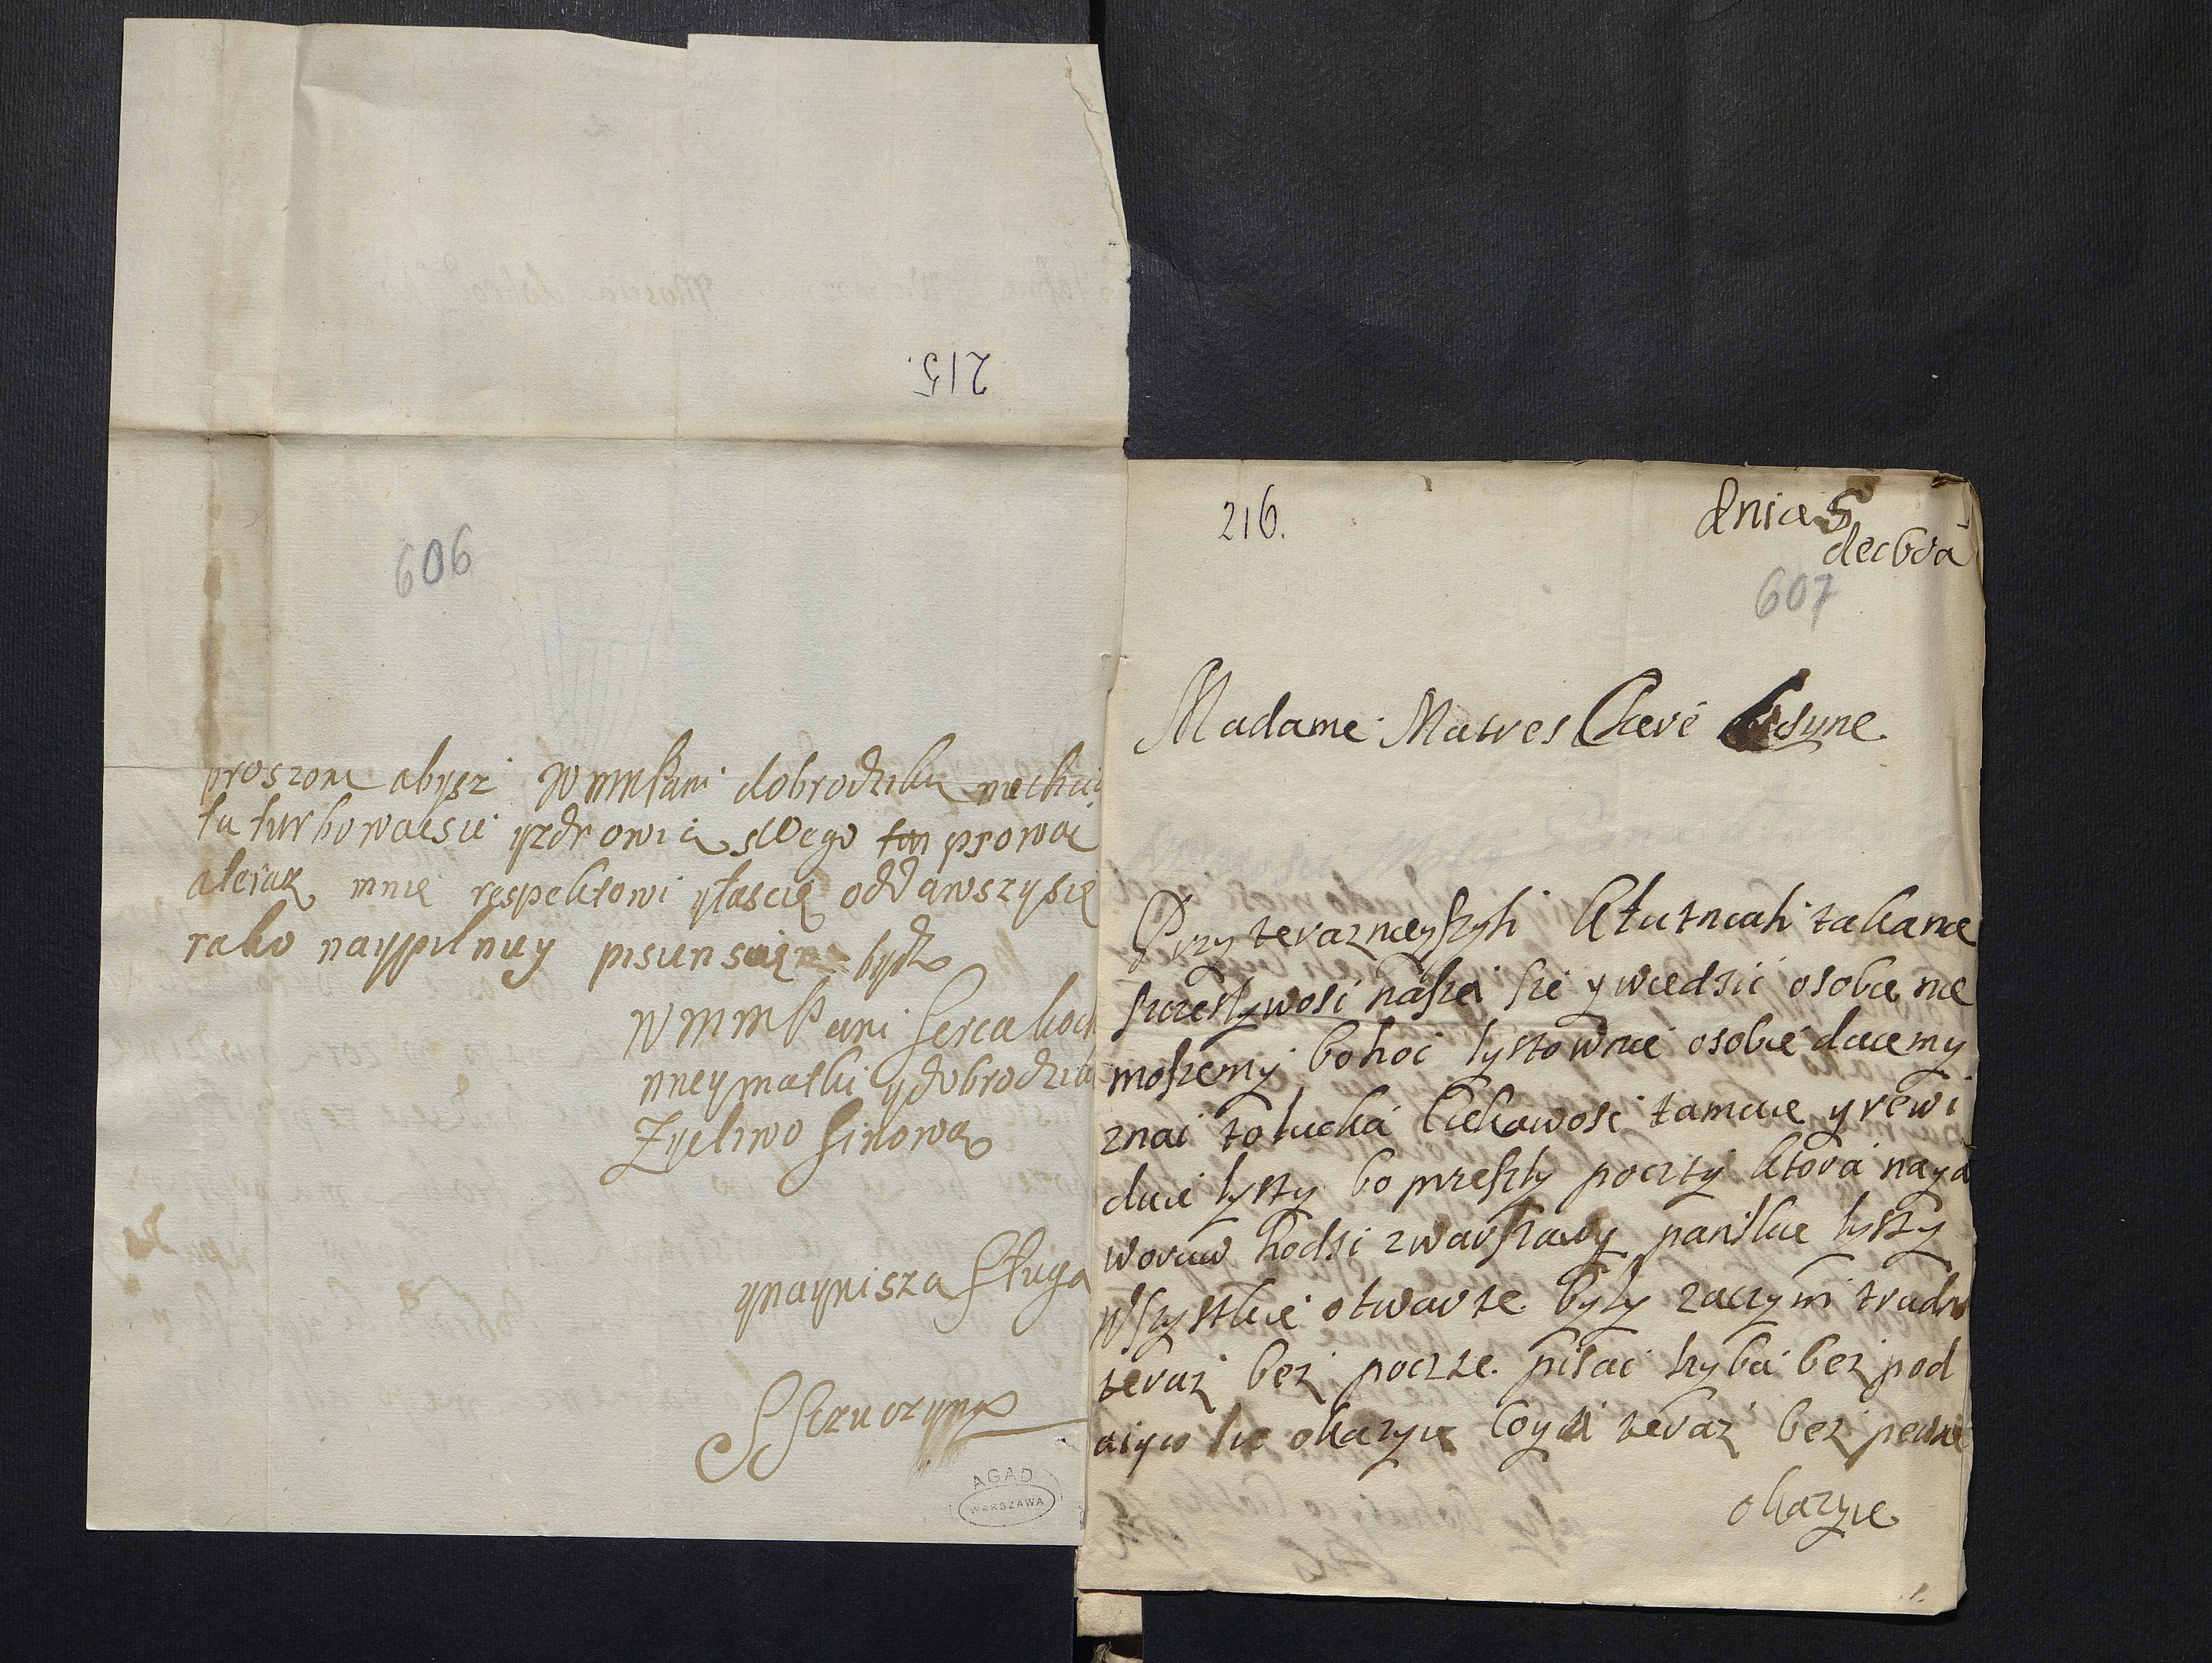 215.
606
proszone abysz WMMPani dobrodzika niechcie
ta turbowacsie yzdrowia swego tam psowac
ateraz mnie respektowi ylascie oddawszysie
rako nayppilniey
WMMPani serca koch
nney matki ydobrodziki
Zyeliwo sinowa
ynaynisza sługa
SSczuczyna
AGAD
WARSZAWA
216.
dnia 5
decbra
607
Madame Matres Cheré Cusyne
Przy teraznieyszyh kłutniah takane
szczeslywosc nasza sie y wiedzic osobie nie
mozemy bo hoc lystownie osobie daiemy
znac to lucka ciekawosc tamuie y rewi
duie lysty bo przeszły poczty ktora nayd
woraw hodzi zwarszawy panskie lysty
wszystkie otwarte były zaczym trudn
teraz bez poczte pisac hyba bez pod
aiyco sie okazyie coy ti teraz bez pewne
okazyie